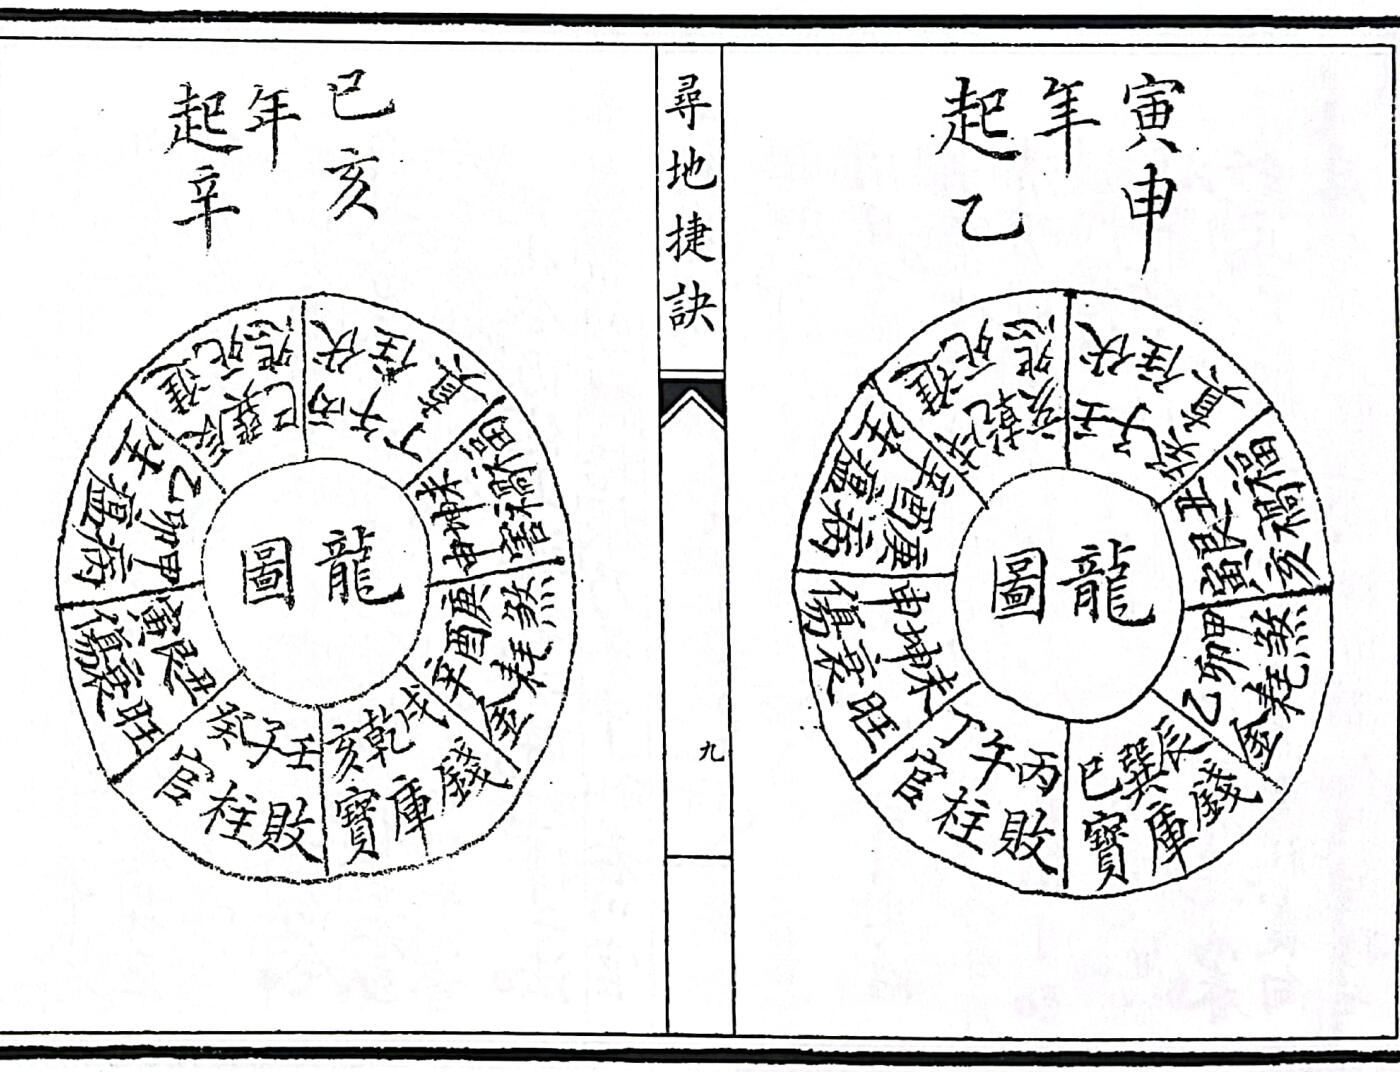 寅申
年
起乙
龍圖
壬子癸
伏
丑艮寅
福禍亥
甲卯乙
煞耗
辰巽巳
錢庫寶
丙午丁
敗柱官
未坤申
旺衰傷
庚酉辛
病瘟生
乾亥
死
尋地捷訣
九
巳亥
年
起辛
龍圖
丙午丁
伏
未坤申
福禍害
庚酉辛
煞耗
戌乾亥
錢庫寶
壬子癸
敗柱官
丑艮寅
旺衰傷
甲卯乙
病瘟生
辰巽巳
死